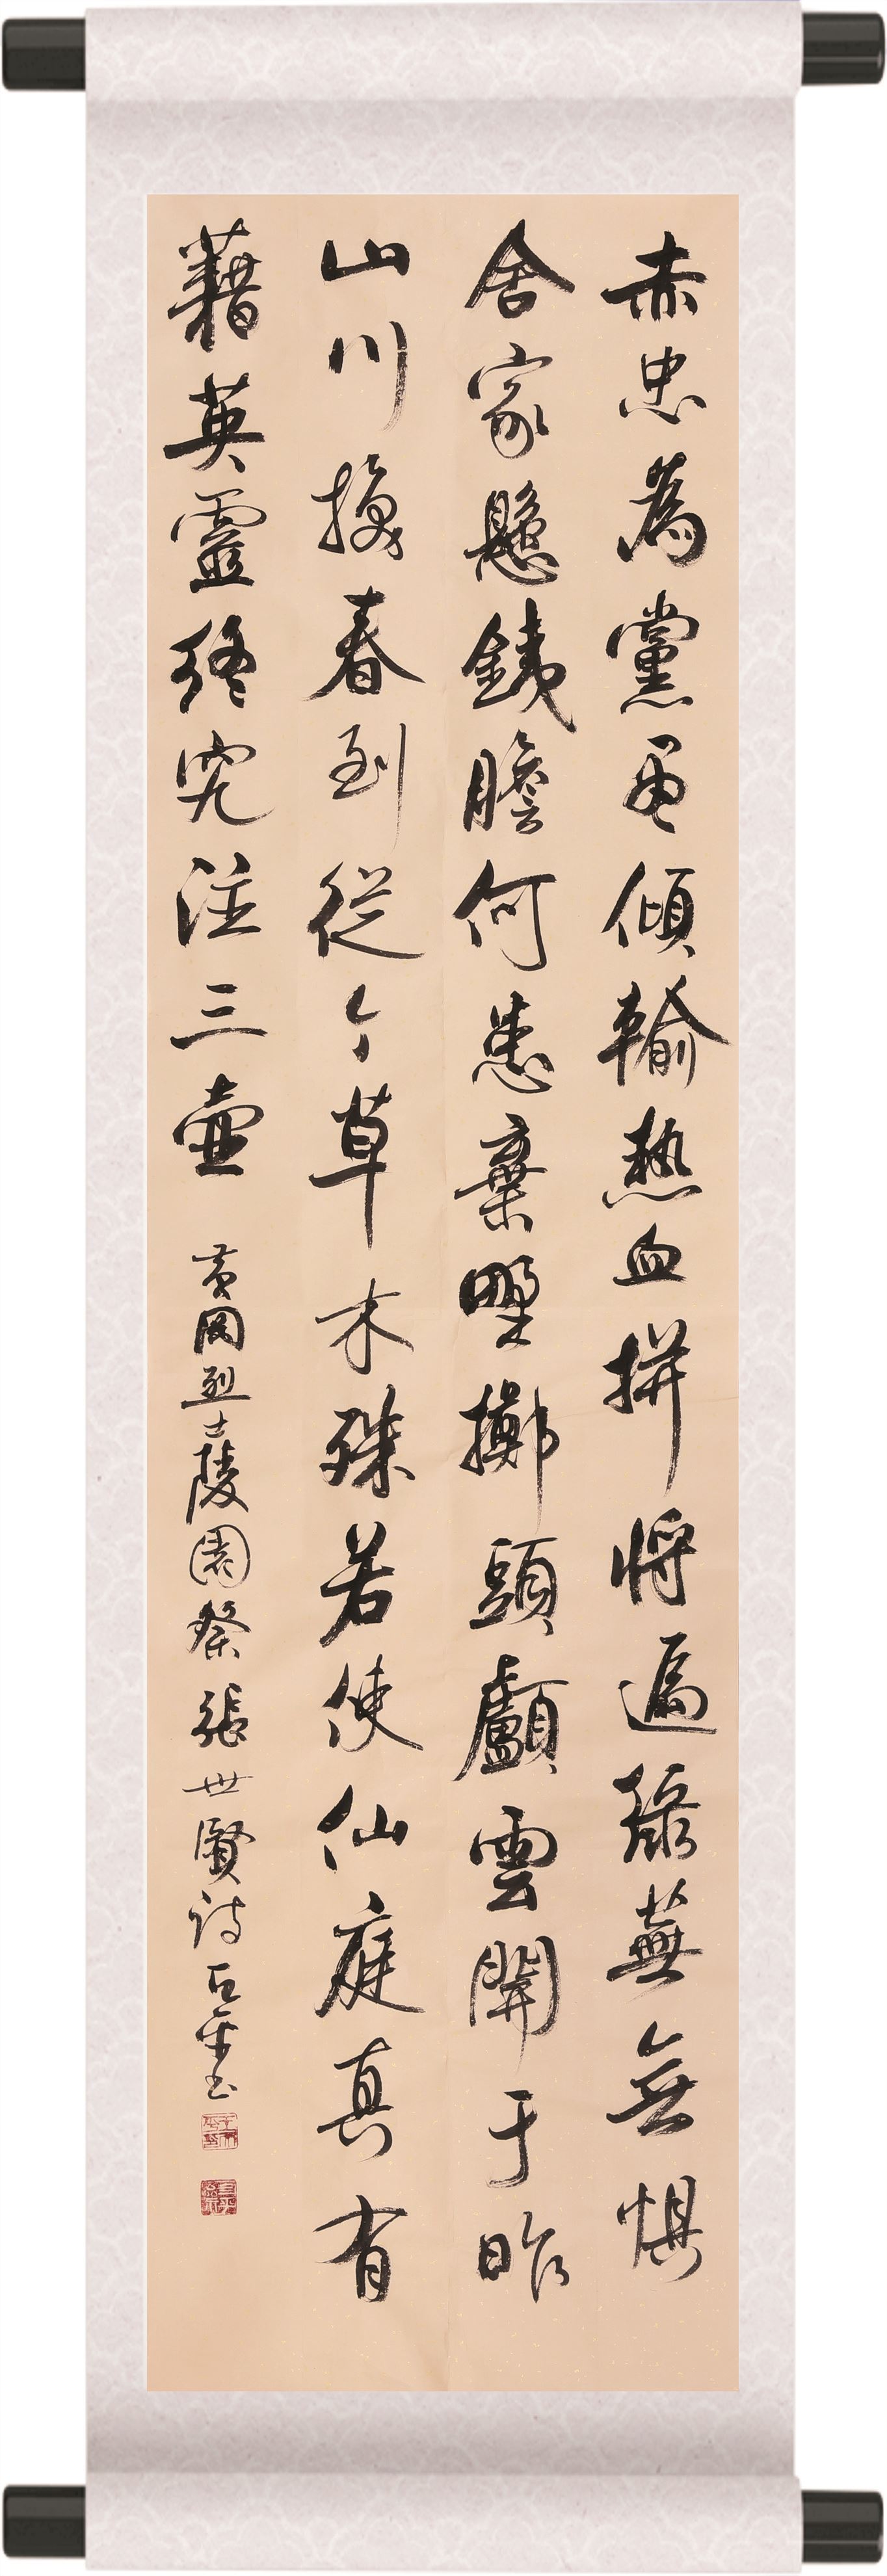 赤忠為黨更傾輸熱血拼將遍綠蕪無懼
舍家懸鐵膽何患棄野擲頭顱雲開于昨
山川換春到從今草木殊若使仙庭真有
藉英靈終究注三壺
黃岡烈士陵園祭張世賢詩